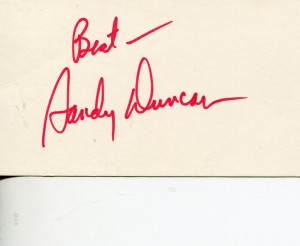 Best —
Sandy Duncan